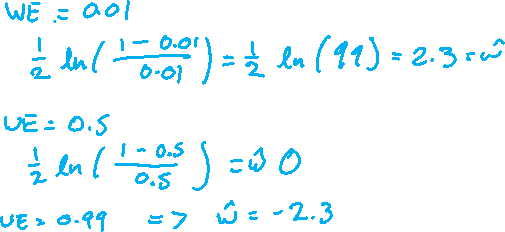 WE = 0.01
1/2 ln( (1 - 0.01)/0.01 ) = 1/2 ln(99) = 2.3 = ŵ
WE = 0.5
1/2 ln( (1 - 0.5)/0.5 ) = ŵ 0
WE = 0.99 => ŵ = -2.3